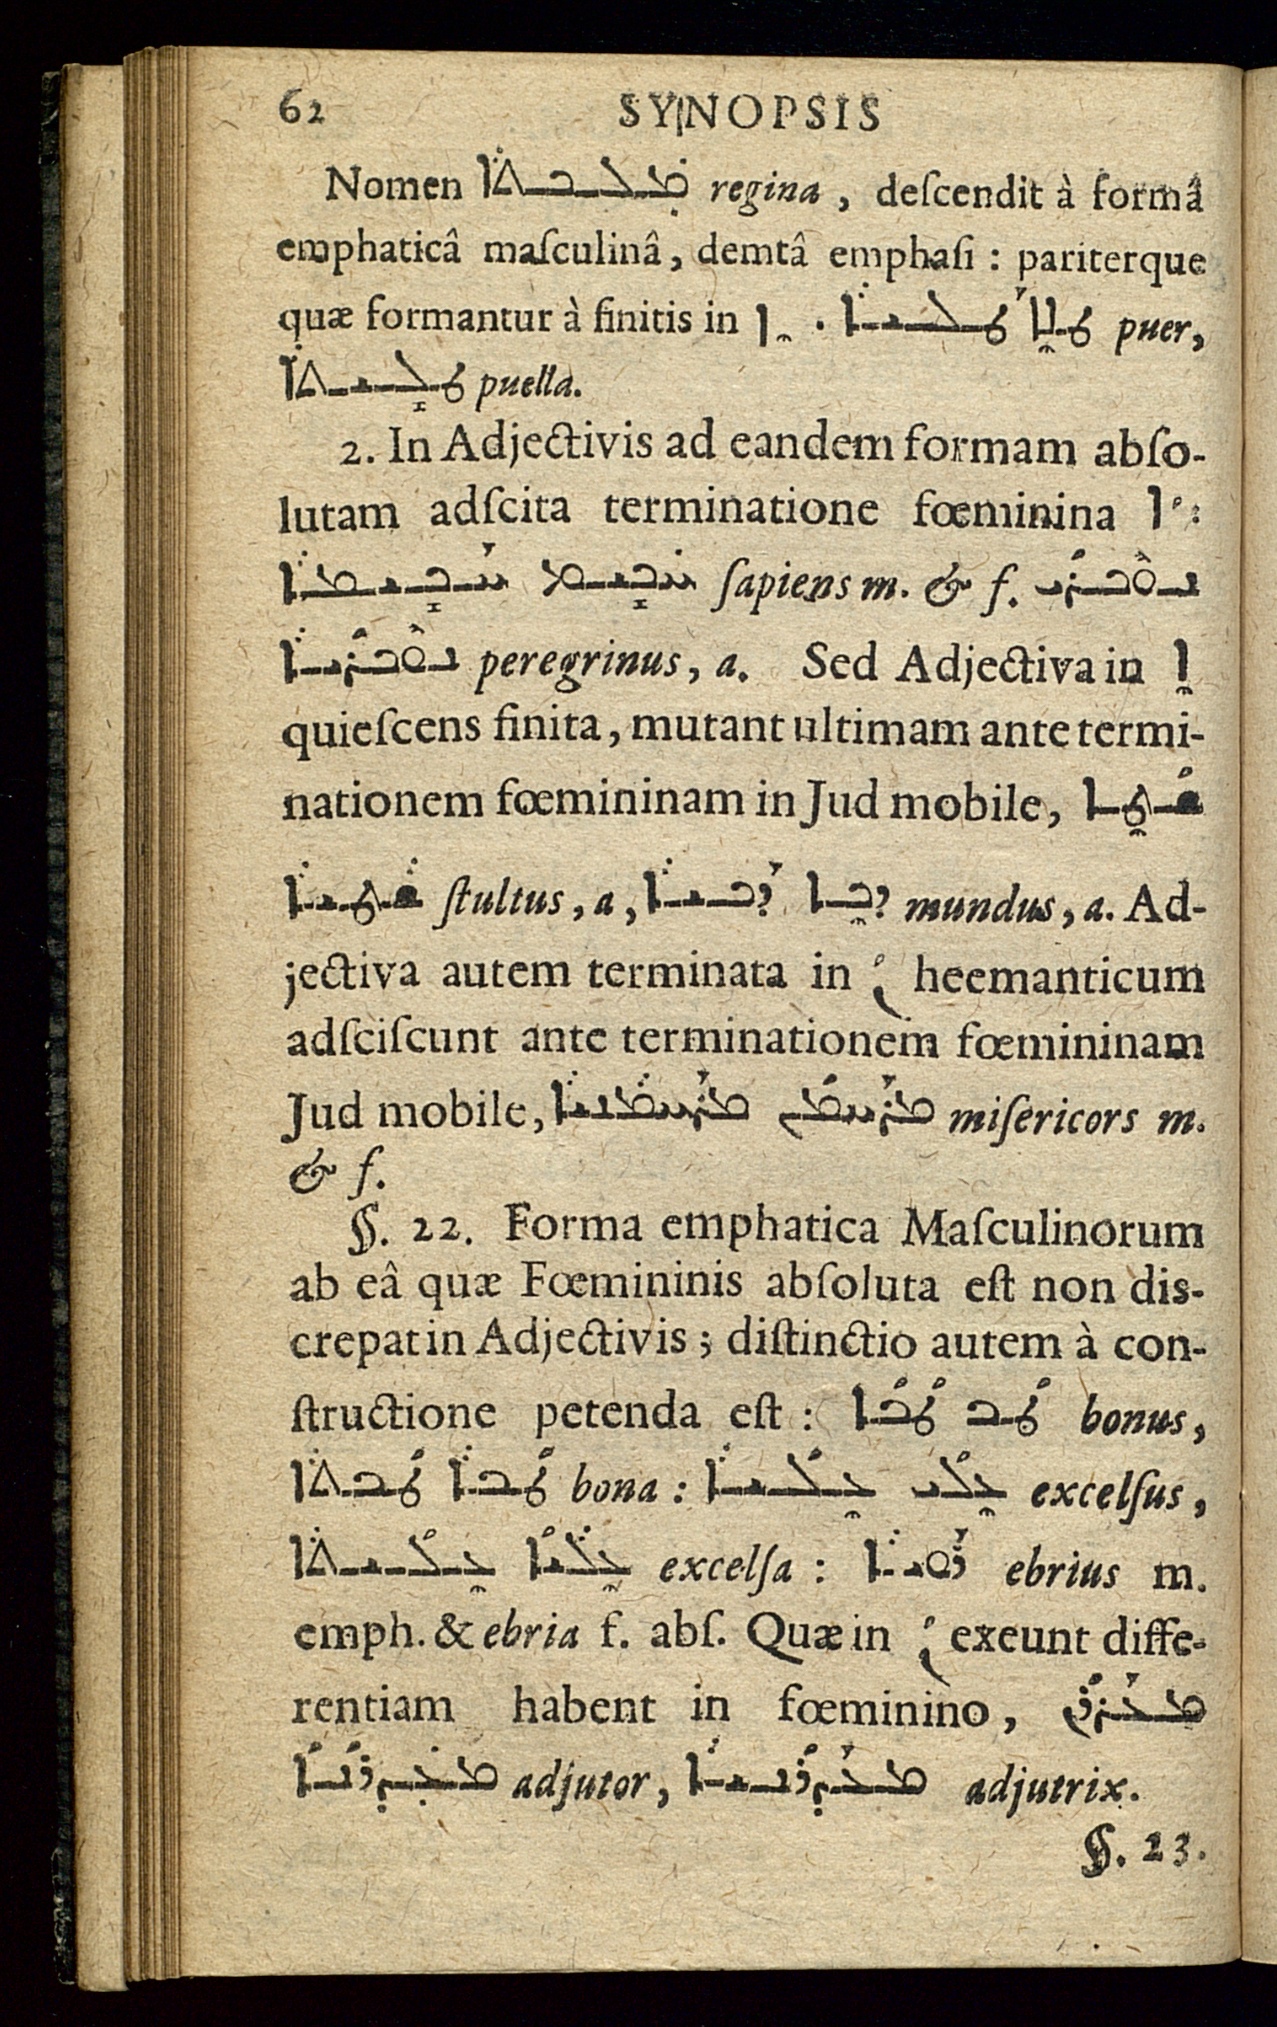 62 SYNOPSIS
Nomen ܡܠܟܬܐ regina, deſcendit à formâ
emphaticâ maſculinâ, demtâ emphaſi: pariterque
quæ formantur à finitis in ܐ . ܛܠܝܐ puer,
ܛܠܝܬܐ puella.
2. In Adjectivis ad eandem formam abſo-
lutam adſcita terminatione fœminina ܐ:
ܚܟܝܡܐ ܚܟܝܡ ſapiens m. & f. ܢܘܟܪܝ
ܢܘܟܪܝܐ peregrinus, a. Sed Adjectiva in ܐ
quieſcens finita, mutant ultimam ante termi-
nationem fœmininam in Jud mobile, ܫܛܐ
ܫܛܝܐ ſtultus, a, ܕܟܝܐ ܕܟܐ mundus, a. Ad-
jectiva autem terminata in ܢ heemanticum
adſciſcunt ante terminationem fœmininam
Jud mobile, ܡܪܚܡܢܝܐ ܡܪܚܡܢ miſericors m.
& f.
§. 22. Forma emphatica Maſculinorum
ab eâ quæ Fœmininis abſoluta eſt non dis-
crepat in Adjectivis; diſtinctio autem à con-
ſtructione petenda eſt: ܛܒܐ ܛܒ bonus,
ܛܒܬܐ ܛܒܐ bona: ܥܠܝܐ ܥܠܝ excelſus,
ܥܠܝܬܐ ܥܠܝܐ excelſa: ܪܘܝܐ ebrius m.
emph. & ebria f. abſ. Quæ in ܢ exeunt diffe-
rentiam habent in fœminino, ܡܥܕܪܢ
ܡܥܕܪܢܐ adjutor, ܡܥܕܪܢܝܐ adjutrix.
§. 23.